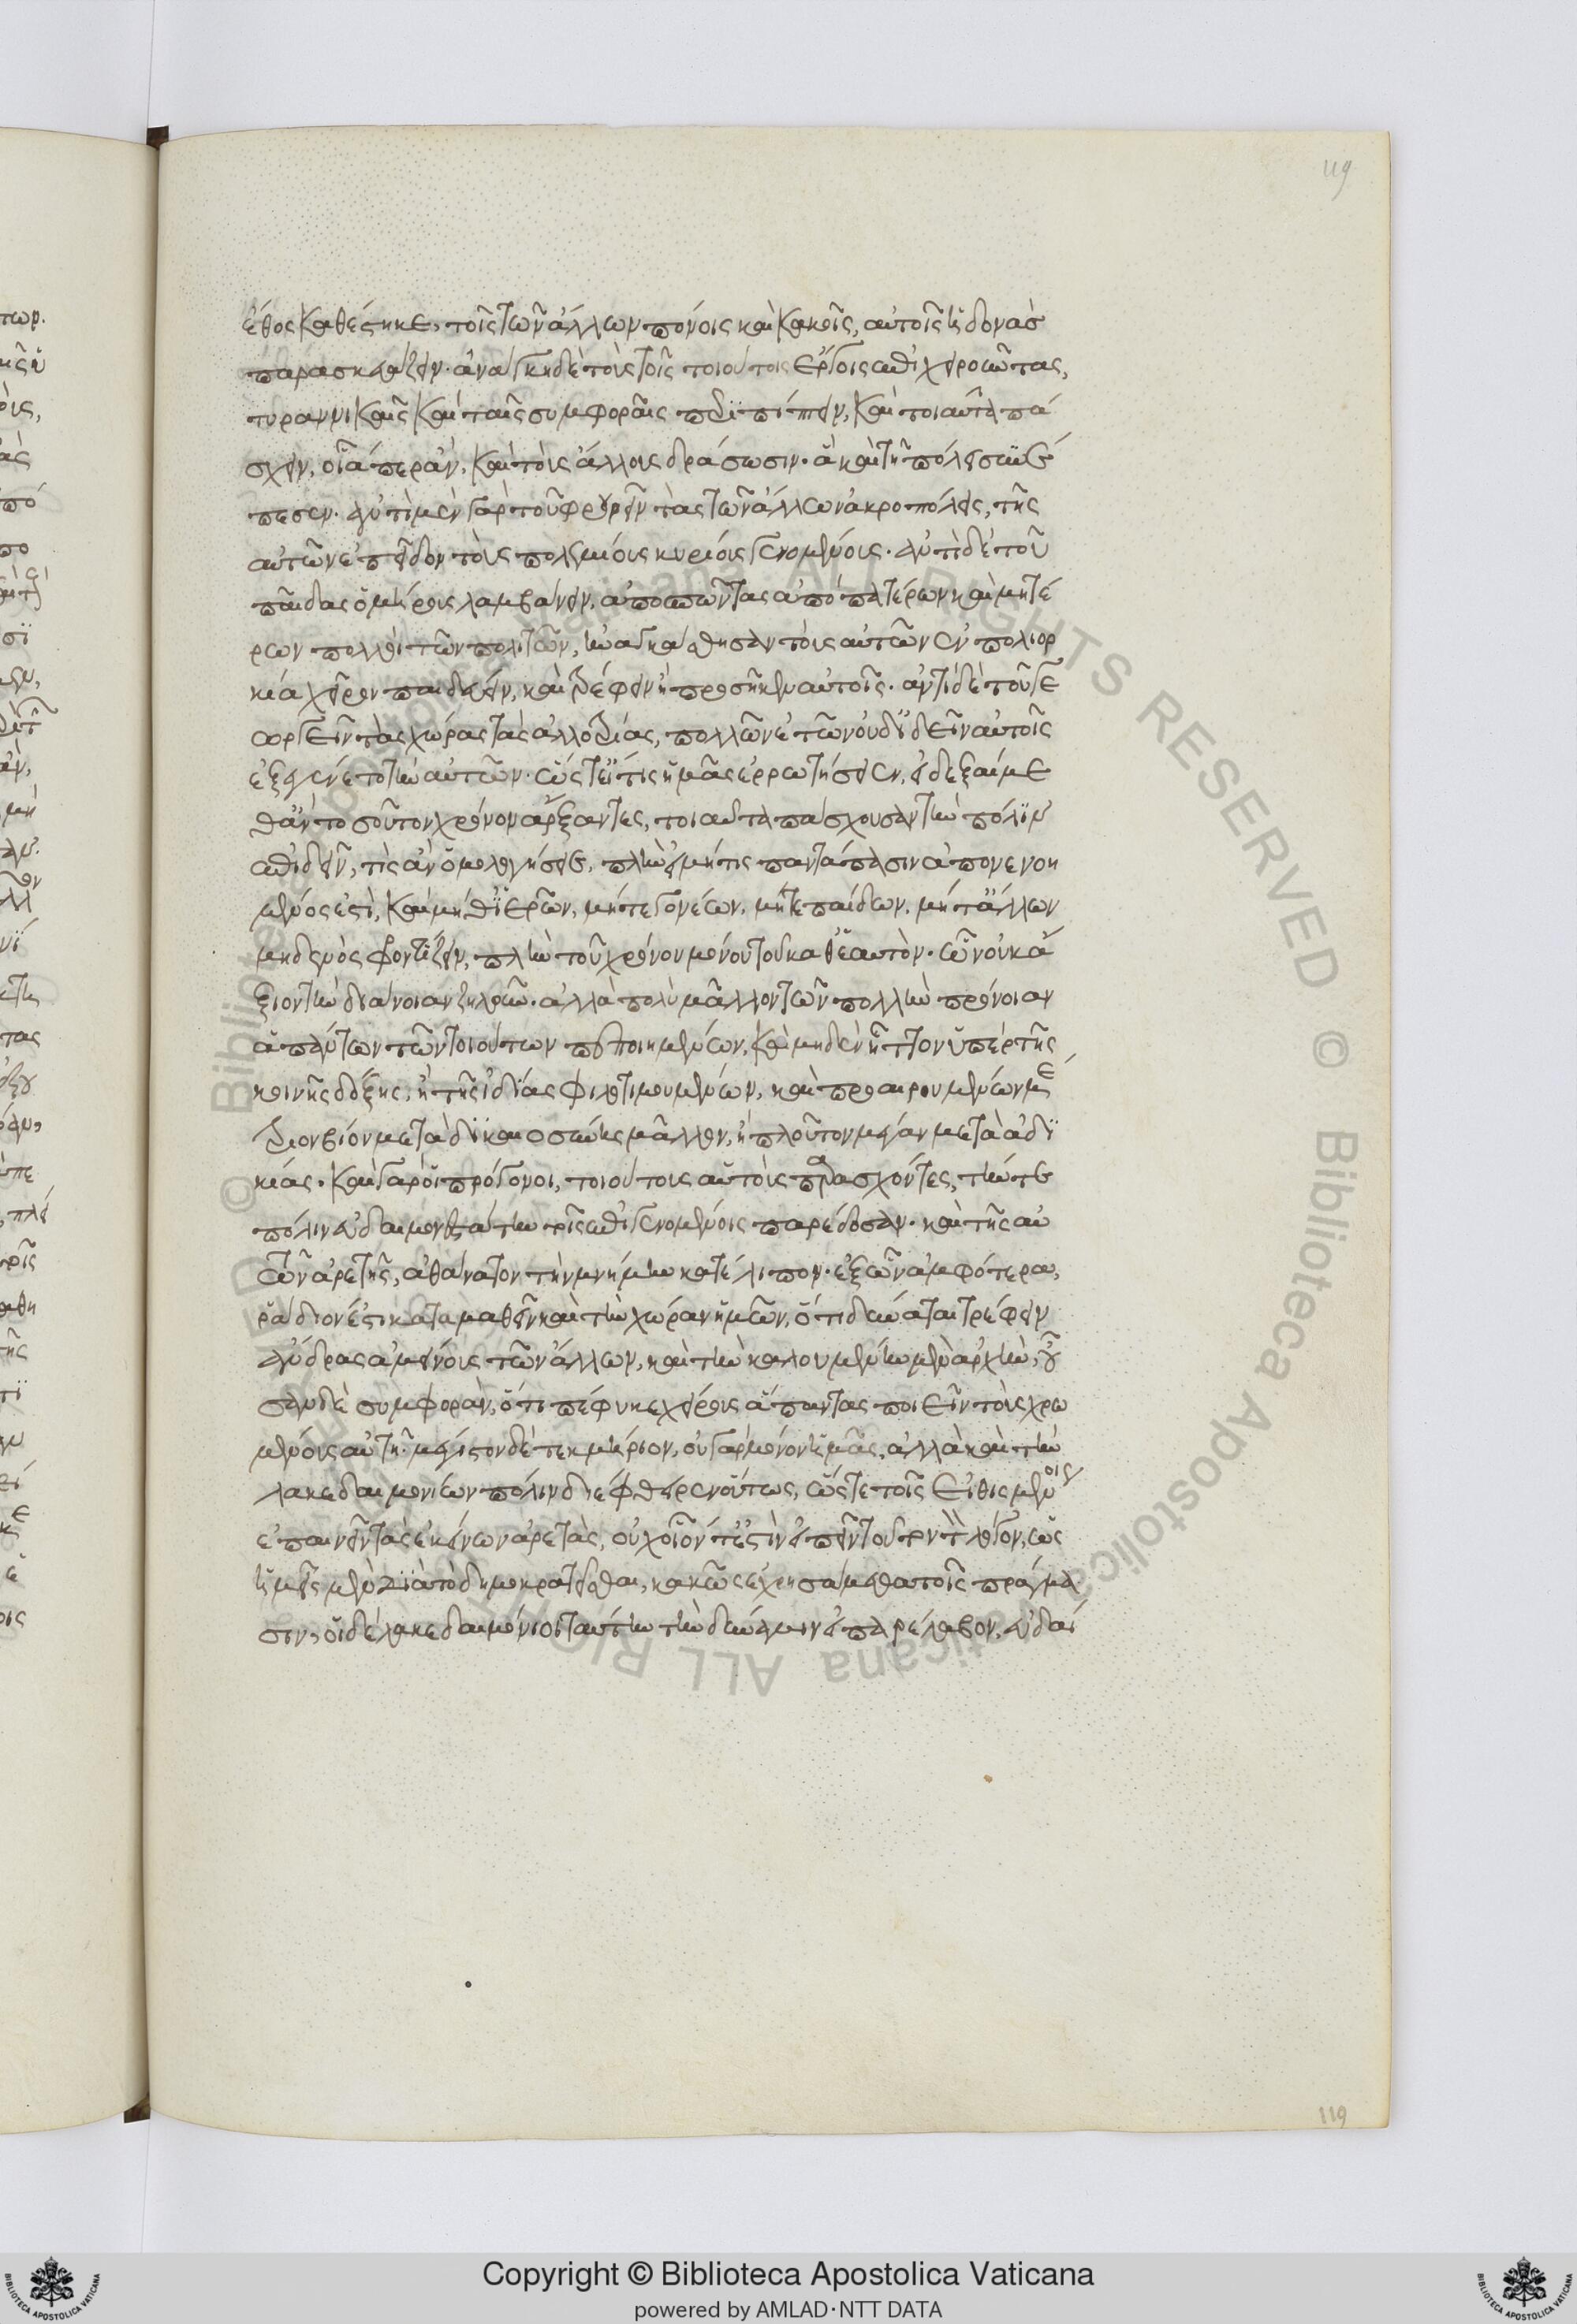 ἔθος καθέστηκε, τοῖς τῶν ἄλλων πόνοις καὶ κακοῖς, αὐτοῖς ἡδονὰσ
παρασκευάζειν· ἀνάγκη δὲ τοὺς τοῖς τοιούτοις ἔργοις ἐπιχειροῦντας,
τυραννικαῖς καὶ ταῖς συμφοραῖς περιπίπτειν, καὶ τοιαῦτα πά
σχειν, οἷά περ ἂν, καὶ τοὺς ἄλλους δράσωσιν· ἃ καὶ τῆ πόλει συνέ
πεσεν· ἀντὶ μὲν γὰρ τοῦ φρουρεῖν τὰς τῶν ἄλλων ἀκροπόλεις, τῆς
αὐτῶν ἐπεῖδον τοὺς πολεμίους κυρίους γενομένους· ἀντὶ δὲ τοῦ
παῖδας ὁμήρους λαμβάνειν, ἀποσπῶντας ἀπὸ πατέρων καὶ μητέ
ρων πολλοὶ τῶν πολιτῶν, ἠναγκάσθησαν τοὺς αὐτῶν ἐν πολιορ
κία χεῖρον παιδεύειν, καὶ τρέφειν ἢ προσῆκεν αὐτοῖς· ἀντὶ δὲ τοῦ γε
ωργεῖν τὰς χώρας τὰς ἀλλοτρίας, πολλῶν ἐτῶν οὐδ' ἰδεῖν αὐτοῖς
ἐξεγένετο τὴν αὐτῶν· ὥστ' εἴ τις ἡμᾶς ἐρρωτήσειεν, εἰ δεξαίμε
θ' ἂν τοσοῦτον χρόνον ἄρξαντες, τοιαῦτα πάσχουσαν τὴν πόλιν
ἐπιδεῖν, τὶς ἂν ὁμολογήσειε, πλὴν εἰ μή τις παντάπασιν ἀπονενοη
μένος ἐστὶ, καὶ μήθ' ἱερῶν, μήτε γονέων, μήτε παίδων, μήτ' ἄλλων
μηδενὸς φροντίζειν, πλὴν τοῦ χρόνου μόνου τοῦ καθ' ἑαυτὸν· ὧν οὐκ ἄ
ξιον τὴν διάνοιαν ζηλοῦν· ἀλλὰ πολὺ μᾶλλον τῶν πολλὴν πρόνοιαν
ἁπάντων τῶν τοιούτων πεποιημένων, καὶ μηδὲν ἧττον ὑπὲρ τῆς
κοινῆς δόξης, ἢ τῆς ἰδίας φιλοτιμουμένων, καὶ προαιρουμένων μέ
τριον βίον μετὰ δικαιοσύνης μᾶλλον, ἢ πλοῦτον μέγαν μετὰ ἀδι
κίας· καὶ γὰρ οἱ πρόγονοι, τοιούτους αὑτοὺς παρασχόντες, τήν τε
πόλιν εὐδαιμονεστάτην τοῖς ἐπιγενομένοις παρέδοσαν· καὶ τῆς αὐ
τῶν ἀρετῆς, ἀθάνατον τὴν μνήμην κατέλιπον· ἐξ ὧν ἀμφότερα,
ῥάδιόν ἐστι καταμαθεῖν καὶ τὴν χώραν ἡμῶν, ὅτι δύναται τρέφειν
ἄνδρας ἀμείνους τῶν ἄλλων, καὶ τὴν καλουμένην μὲν ἀρχὴν, οὖ
σαν δὲ συμφορὰν, ὅτι πέφυκε χείρους ἅπαντας ποιεῖν τοὺς χρω
μένους αὐτῆ· μέγιστον δὲ τεκμήριον, οὐ γὰρ μόνον ἡμᾶς, ἀλλὰ καὶ τὴν
λακεδαιμονίων πόλιν διέφθειρεν οὕτως, ὥστε τοῖς εἰθισμένοις
ἐπαινεῖν τὰς ἐκείνων ἀρετὰς, οὐχ οἷόν τ' ἐστὶν εἰπεῖν τοῦτον τὸν λόγον, ὡς
ἡμεῖς μὲν διὰ τὸ δημοκρατεῖσθαι, κακῶς ἐχρησάμεθα τοῖς πράγμα
σιν, οἱ δὲ λακεδαιμόνιοι ταύτην τὴν δύναμιν εἰ παρέλαβον, εὐδαί
119